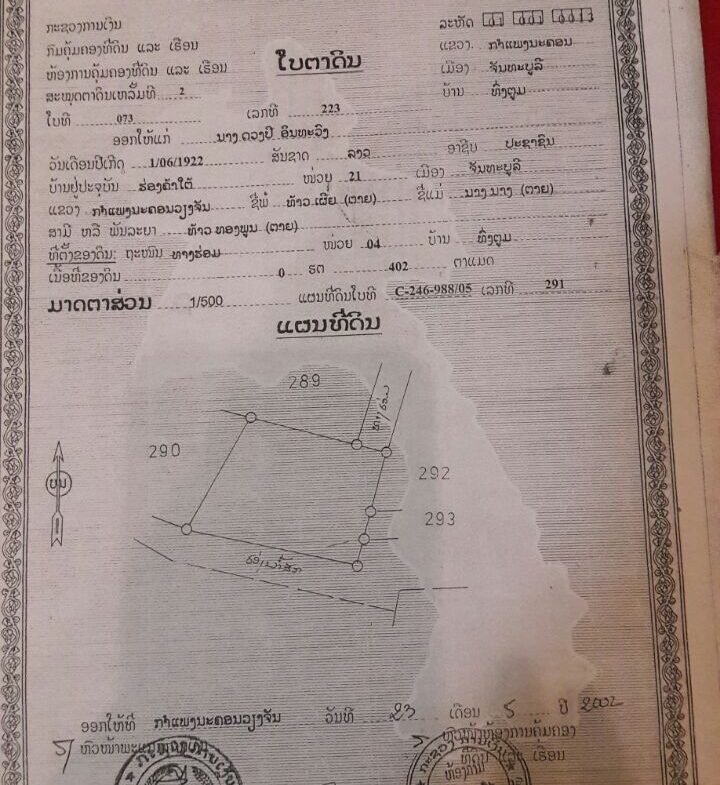 ກະຊວງການເງິນ
ລະຫັດ 01 001 0013
ກົມຄຸ້ມຄອງທີ່ດິນ ແລະ ເຮືອນ
ແຂວງ ກຳແພງນະຄອນ
ຫ້ອງການຄຸ້ມຄອງທີ່ດິນ ແລະ ເຮືອນ
ໃບຕາດິນ
ເມືອງ ຈັນທະບູລີ
ສະໝຸດຕາດິນເຫລັ້ມທີ 2
ບ້ານ ທົ່ງຕູມ
ໃບທີ 073 ເລກທີ 223
ອອກໃຫ້ແກ່ ນາງ ດວງປີ ອິນທະວົງ
ວັນເດືອນປີເກີດ 1/06/1922 ສັນຊາດ ລາວ ອາຊີບ ປະຊາຊົນ
ບ້ານຢູ່ປະຈຸບັນ ຮ່ອງຄ້າໃຕ້ ໜ່ວຍ 21 ເມືອງ ຈັນທະບູລີ
ແຂວງ ກຳແພງນະຄອນວຽງຈັນ ຊື່ພໍ່ ທ້າວ ເຜີຍ (ຕາຍ) ຊື່ແມ່ ນາງ ນາງ (ຕາຍ)
ສາມີ ຫລື ພັນລະຍາ ທ້າວ ທອງພູນ (ຕາຍ)
ທີ່ຕັ້ງຂອງດິນ: ຖະໜົນ ທາງຮ່ອມ ໜ່ວຍ 04 ບ້ານ ທົ່ງຕູມ
ເນື້ອທີ່ຂອງດິນ 0 ຮຕ 402 ຕາແມດ
ມາດຕາສ່ວນ 1/500 ແຜນທີ່ດິນໃບທີ C-246-988/05 ເລກທີ 291
ແຜນທີ່ດິນ
289
ທາງຮ່ອມ
290
292
293
ຮ່ອງນ້ຳ
ອອກໃຫ້ທີ່ ກຳແພງນະຄອນວຽງຈັນ ວັນທີ 23 ເດືອນ 5 ປີ 2002
ຫົວໜ້າຫ້ອງການຄຸ້ມຄອງ
ຫົວໜ້າພະ
ເຮືອນ
ຫ້ອງການ